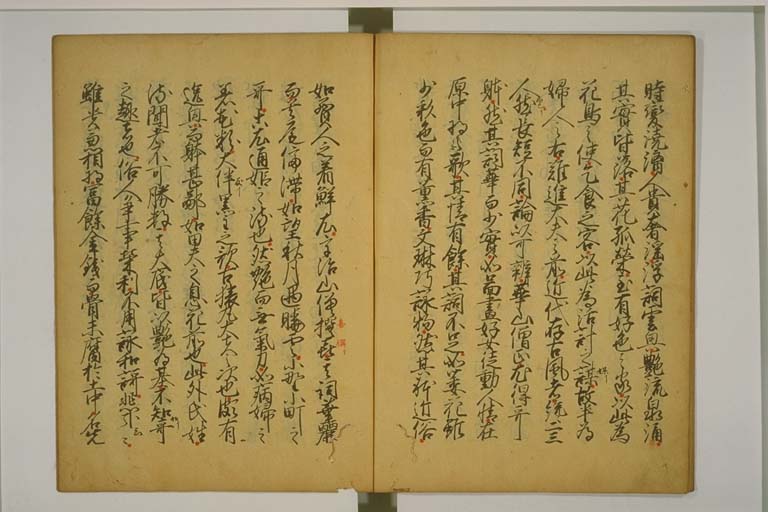 時變澆漓人貴奢淫浮詞雲興艶流泉涌
其實皆落其花孤榮至有好色之家以此為
花鳥之使乞食之客以此為活計之謀故半為
婦人之右難進大夫之前近代存古風者纔二三
人然長短不同論以可辨華山僧正尤得哥
躰然其詞華而少實如圖畫好女徒動人情在
原中将之歌其情有餘其詞不足如萎花雖
少彩色而有薫香文琳巧詠物然其躰近俗
如賈人之着鮮衣宇治山僧撰喜其詞華麗
而首尾停滞如望秋月遇曉雲小野小町之
哥古衣通姫之流也然艶而無氣力如病婦之
着花粉大伴黒主之哥古猿丸大夫之次也頗有
逸興而躰甚鄙如田夫之息花前也此外氏姓
流聞者不可勝数其大底皆以艶為基不知哥
之趣者也俗人争事榮利不用詠和謌悲哉々々
雖貴兼相将富餘金錢而骨未腐於土中名先